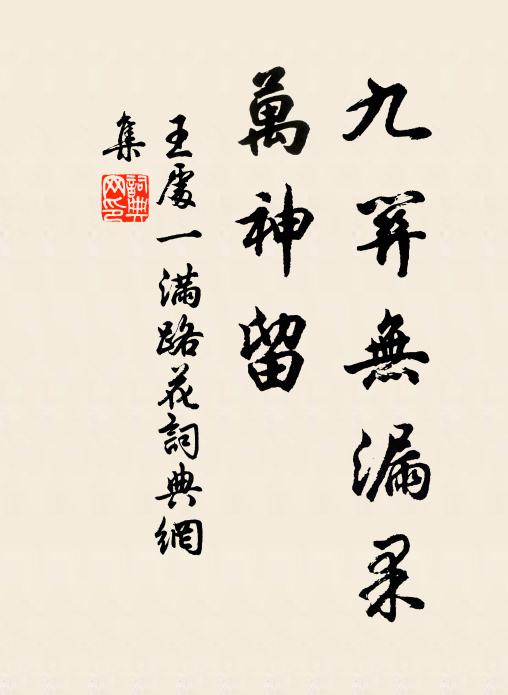 九無漏果
萬神留
王處一滿路花詞典網
集
詞典網印